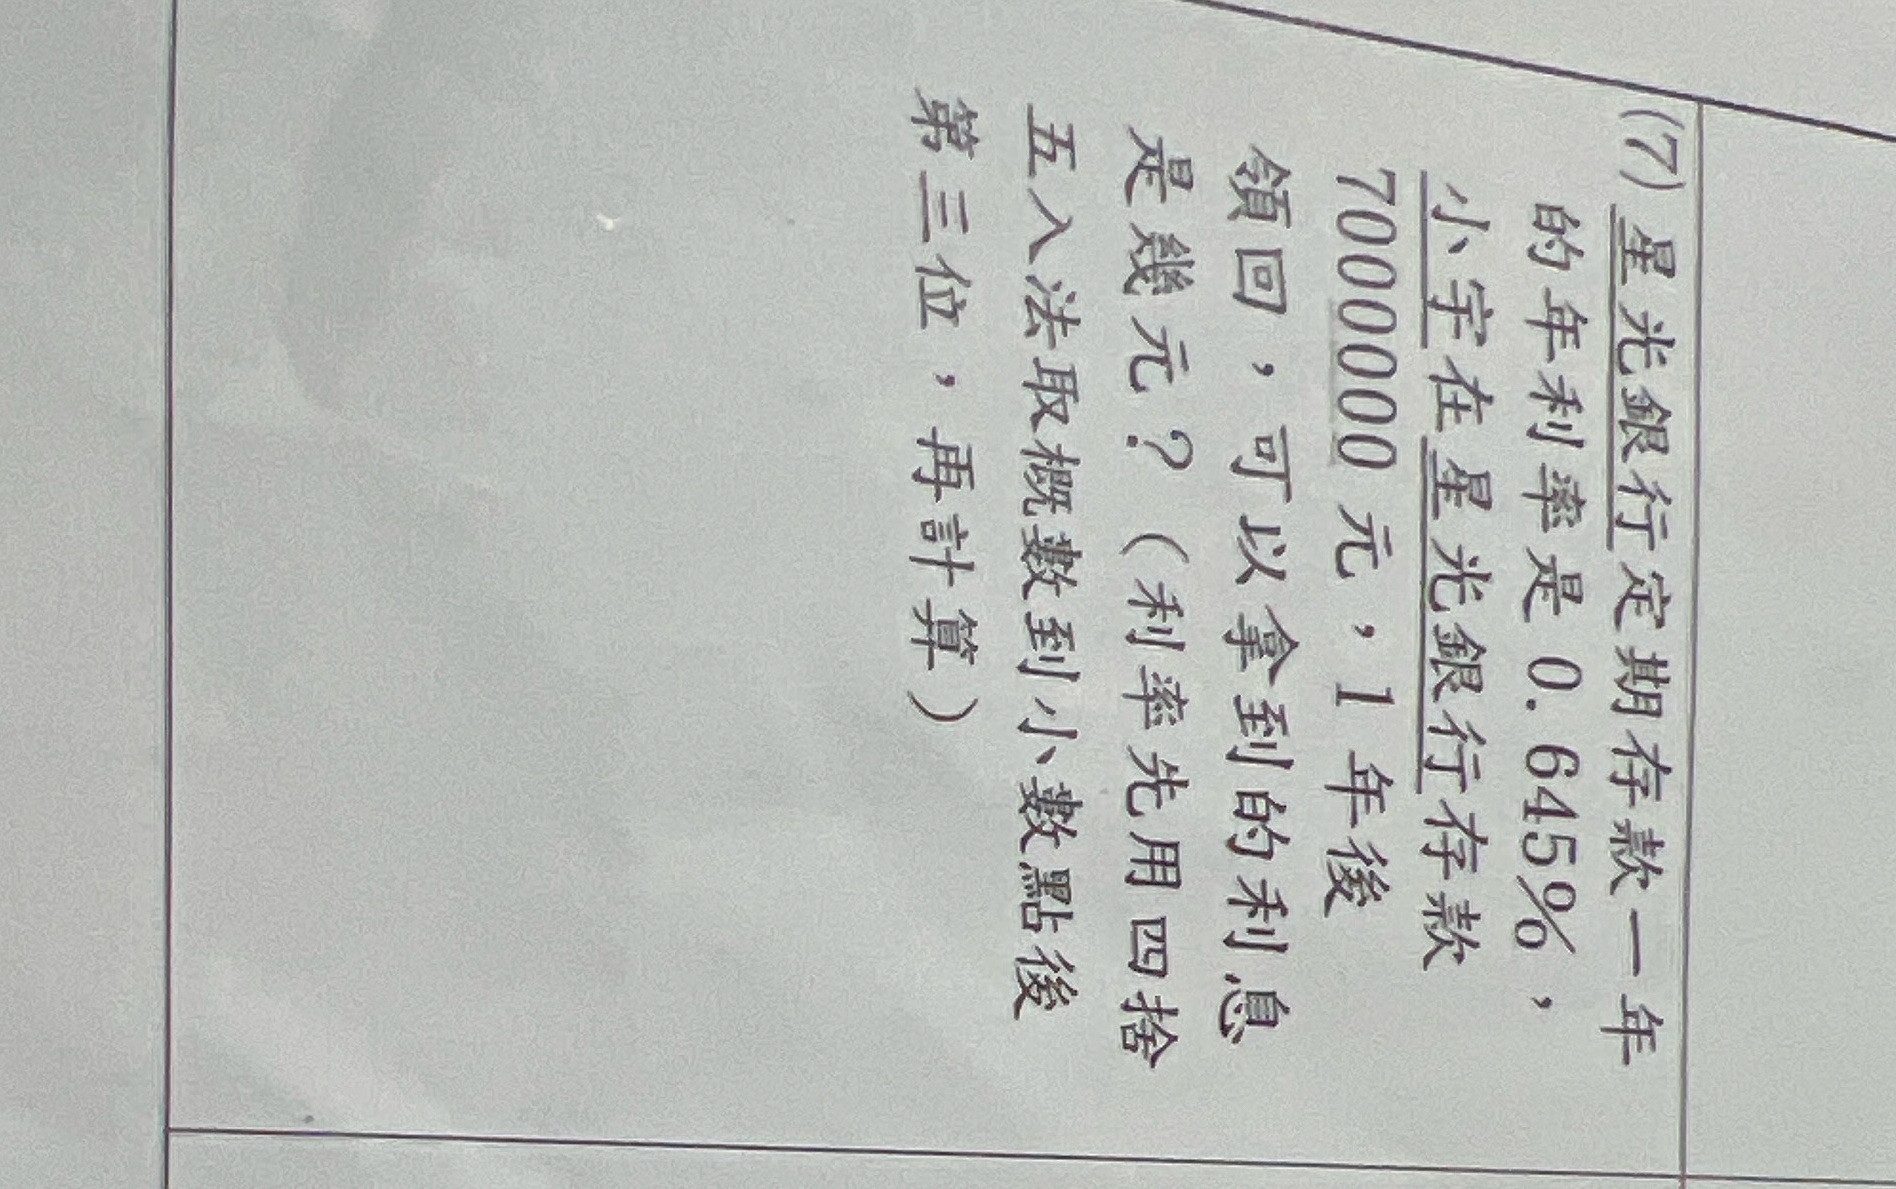 (7)星光銀行定期存款一年
的年利率是0.645%，
小宇在星光銀行存款
70000000元，1年後
領回，可以拿到的利息
是幾元？（利率先用四捨
五入法取概數到小數點後
第三位，再計算）